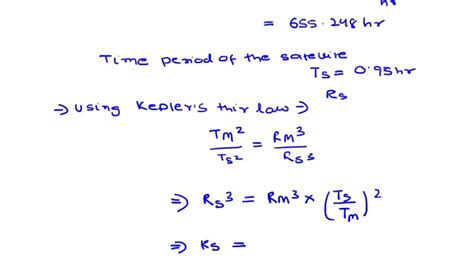 = 655.248 hr
Time period of the satellite
Ts = 0.95 hr
Rs
⇒ Using Kepler's thir law ⇒
TM² / Ts² = RM³ / Rs³
⇒ Rs³ = RM³ × (Ts / Tm)²
⇒ Rs =